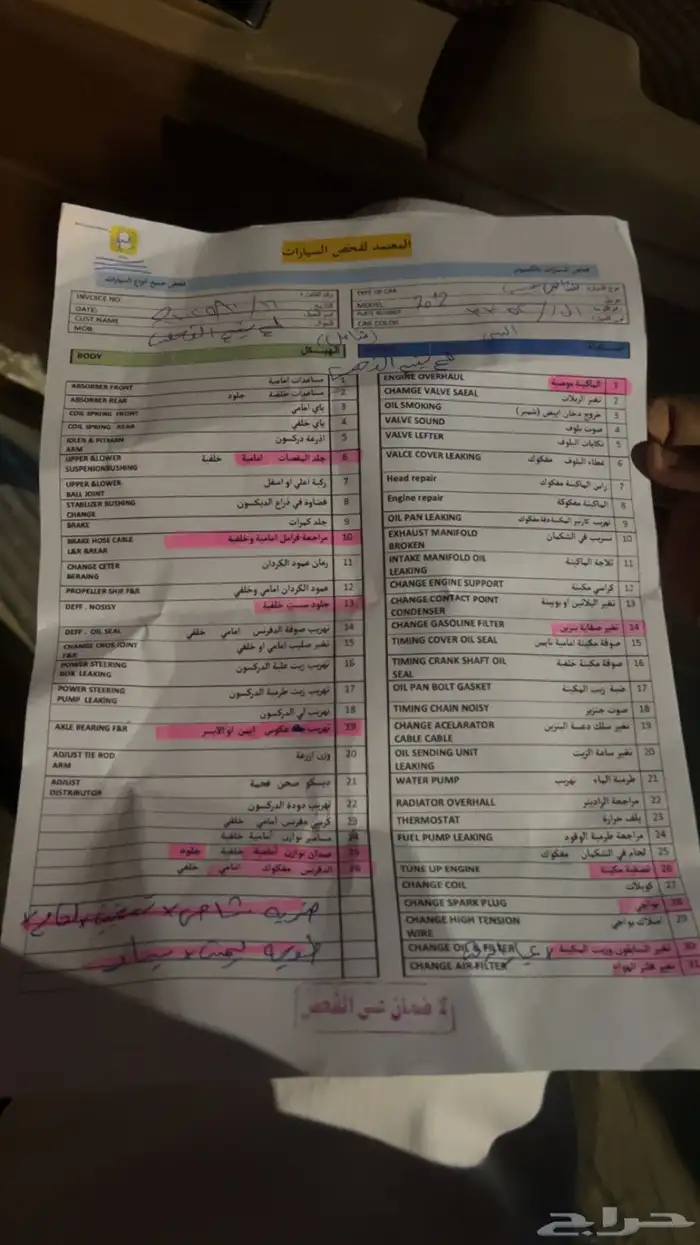 المعتمد لفحص السيارات
فحص السيارات بالكمبيوتر
فحص جميع أنواع السيارات
INVOICE NO:
DATE:
CUST.NAME
MOB:
TYPE OF CAR
MODEL 2012
PLATE NUMBER
CAR COLOR
BODY الهيكل
ABSORBER FRONT مساعدات امامية 1
ABSORBER REAR مساعدات خلفية جلود 2
COIL SPRING FRONT ياي امامي 3
COIL SPRING REAR ياي خلفي 4
IDLEN & PITMAN ARM اذرعة دركسون 5
UPPER & LOWER SUSPENIONBUSHING جلد المقصات امامية خلفية 6
UPPER & LOWER BALL JOINT ركبة اعلي او اسفل 7
STABLIZER BUSHING CHANGE 8
BRAKE 9
BRAKE HOSE CABLE L&R BREAR مراجعة فرامل امامية وخلفية 10
CHANGE CETER BERAING رمان عمود الكردان 11
PROPELLER SHIF F&R عمود الكردان امامي وخلفي 12
DEFF . NOSISY جلود ست خلفية 13
DEFF . OIL SEAL تهريب صوفة الدفرنس امامي خلفي 14
CHANGE CROS JOINT F&R تغير صليب امامي او خلفي 15
POWER STEERING BOX LEAKING تهريب زيت علبة الدركسون 16
POWER STEERING PUMP LEAKING تهريب زيت طرمبة الدركسون 17
تهريب لي الدركسون 18
AXLE REARING F&R تهريب عكوس ايمن او الايسر 19
ADJUST TIE ROD ARM وزن اذرعة 20
ADJUST DISTRIBUTOR ديسكو صحن فحمة 21
تهريب دودة الدركسون 22
كرسي دفرنس امامي خلفي 23
مسامير توازن امامية خلفية 24
صدان توازن امامية خلفية جلود 25
الدفرنس مفكوك امامي خلفي 26
ENGINE OVERHAUL الماكينة موصية 1
CHAMGE VALVE SAEAL تغير الربلات 2
OIL SMOKING خروج دخان ابيض 3
VALVE SOUND صوت بلوف 4
VALVE LEFTER تكايات البلوف 5
VALCE COVER LEAKING غطاء البلوف مفكوك 6
Head repair راس الماكينة مفكوك 7
Engine repair الماكينة مفكوكة 8
OIL PAN LEAKING 9
EXHAUST MANIFOLD BROKEN تسريب في الشكمان 10
INTAKE MANIFOLD OIL LEAKING ثلاجة الماكينة 11
CHANGE ENGINE SUPPORT كراسي مكينة 12
CHANGE CONTACT POINT CONDENSER تغير البلاتين او بوبينة 13
CHANGE GASOLINE FILTER تغير صفاية بنزين 14
TIMING COVER OIL SEAL صوفة مكينة امامية تايمن 15
TIMING CRANK SHAFT OIL SEAL صوفة مكينة خلفية 16
OIL PAN BOLT GASKET طبة زيت المكينة 17
TIMING CHAIN NOISY صوت جنزير 18
CHANGE ACELARATOR CABLE CABLE تغير سلك دعسة البنزين 19
OIL SENDING UNIT LEAKING تغير ساعة الزيت 20
WATER PUMP طرمبة الماء تهريب 21
RADIATOR OVERHALL مراجعة الراديتر 22
THERMOSTAT بلف حرارة 23
FUEL PUMP LEAKING مراجعة طرمبة الوقود 24
لحام في الشكمان مفكوك 25
TUNE UP ENGINE تصفية مكينة 26
CHANGE COIL كويلات 27
CHANGE SPARK PLUG بواجي 28
CHANGE HIGH TENSION WIRE اسلاك بواجي 29
CHANGE OIL & FILTER تغير السايفون وزيت المكينة 30
CHANGE AIR FILTER تغير فلتر الهواء 31
لا ضمان على الفحص
حراج